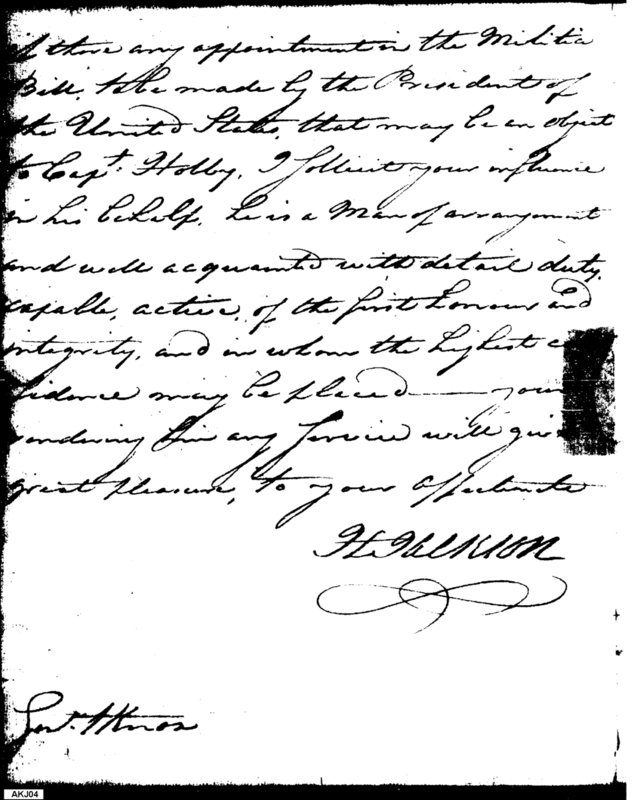 If there any appointment in the Militia
Bill, to be made by the President of
the United States, that may be an object
to Capt. Holby, I sollicit your influence
in his behalf, he is a Man of arrangement
and well acquainted with detail duty,
capable, active, of the first honour and
integrity, and in whom the highest c
fidence may be placed — your
rendering him any service will give
great pleasure, to your affectionate
H Jackson
Genl. HKnox
AKJ04